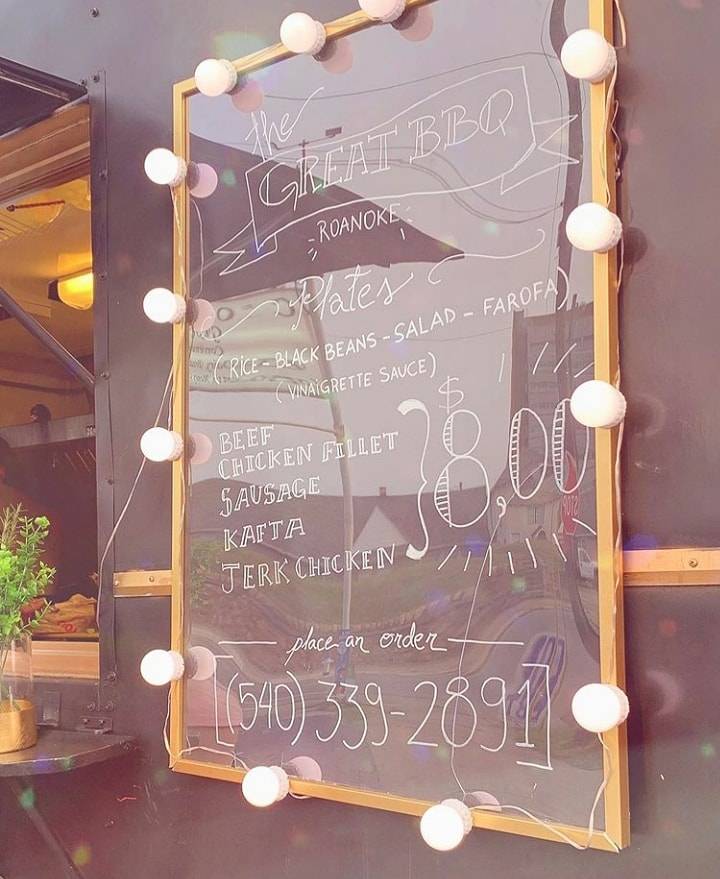 the
GREAT BBQ
ROANOKE
Plates
(RICE - BLACK BEANS - SALAD - FAROFA)
(VINAIGRETTE SAUCE)
BEEF
CHICKEN FILLET
SAUSAGE
KAFTA
JERK CHICKEN
$8,00
place an order
[(540) 339-2891]